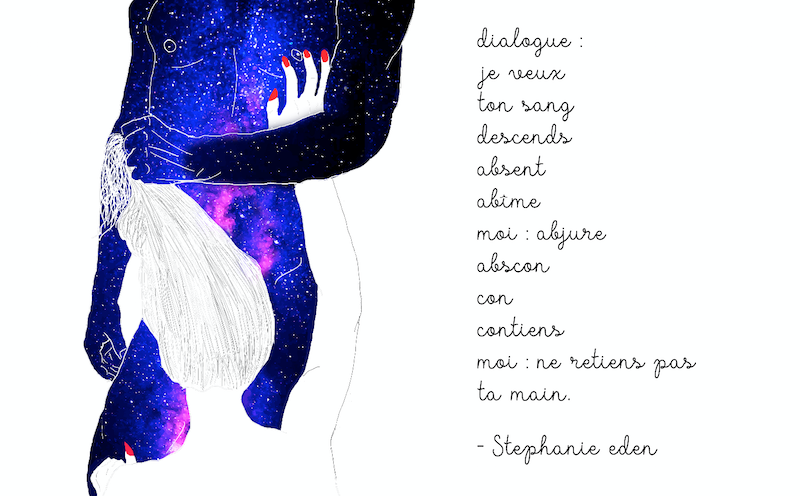 dialogue :
je veux
ton sang
descends
absent
abîme
moi : abjure
abscon
con
contiens
moi : ne retiens pas
ta main.
- Stephanie eden